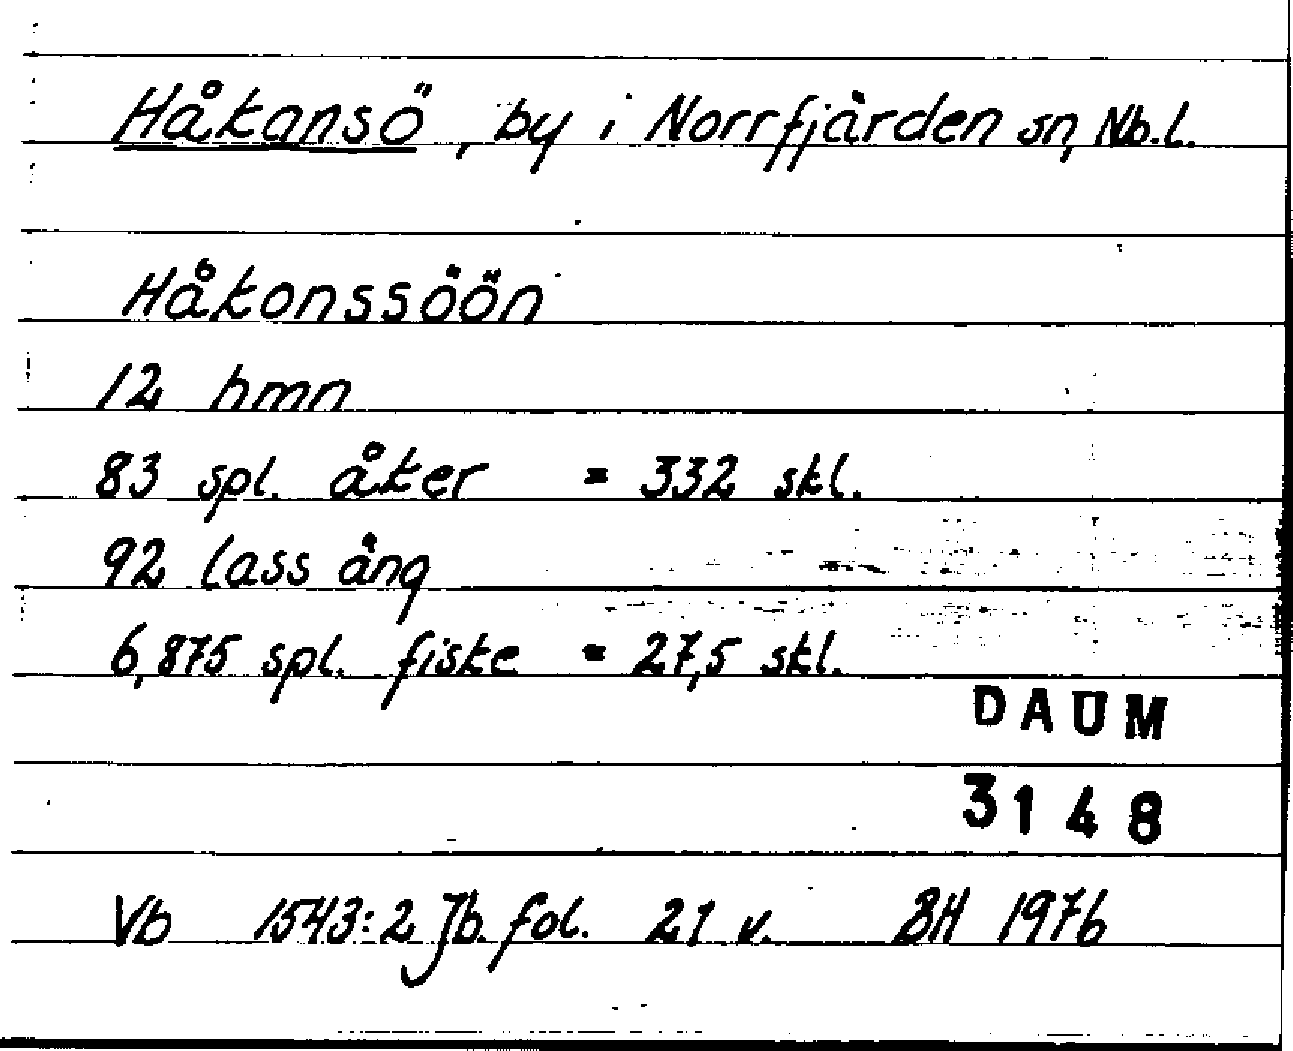 Håkansö, by i Norrfjärden sn, Nb.l.
Håkonssöön
12 hmn
83 spl. åker = 332 skl.
92 lass äng
6,875 spl. fiske = 27,5 skl.
DAUM
3148
Vb 1543:2 Jb. fol. 21 v. BH 1976